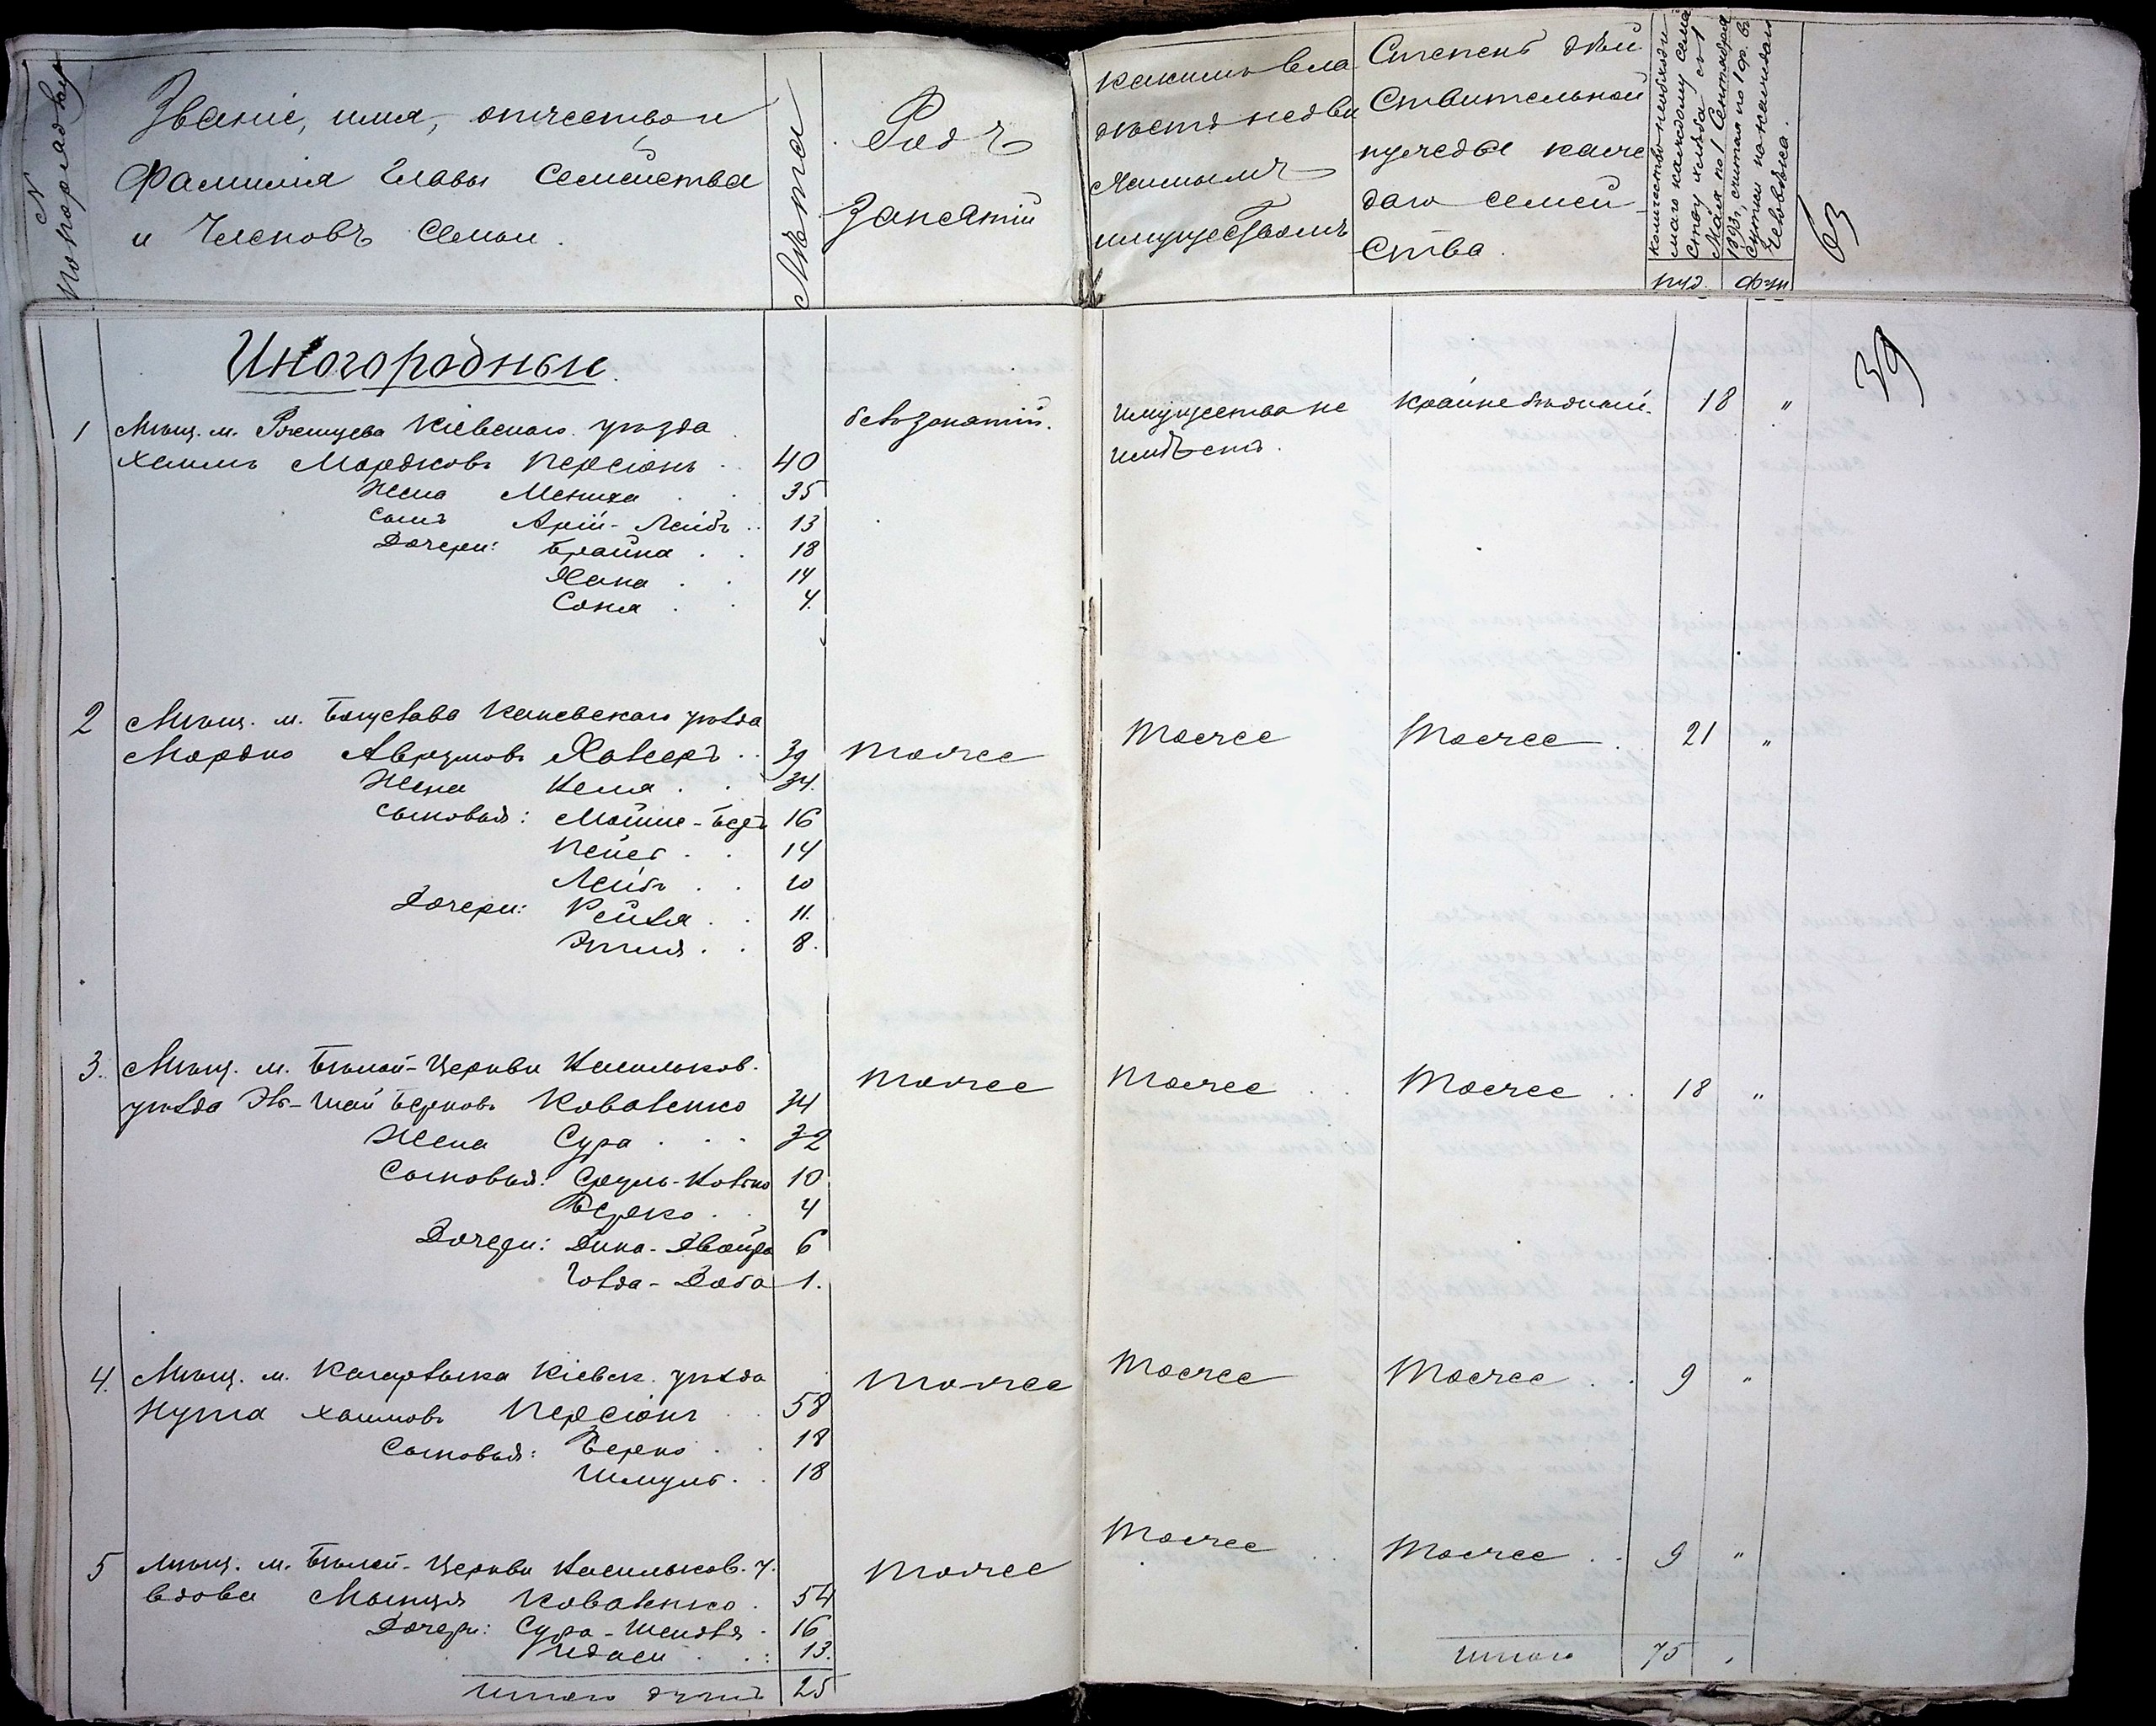 N
по порядку
Званіе, имя, отчество и
Фамилія Главы Семейства
и Членовъ Семьи.
Лѣта
Родъ
Занятій
какимъ вла
дѣетъ недви
жимымъ
имуществомъ
Степень дѣй
ствительной
нужды каж
даго семей-
ства.
количество необходи
маго каждому семей
ству хлѣба съ 1
Мая по 1 Сентября
1893г, считая по 1 ф. въ
сутки на каждаго
человѣка.
пуд.
фун
63
Иногородные.
39
1 Мѣщ. м. Ржищева Кіевскаго уѣзда
безъ занятій.
имущества не
имѣетъ.
крайне бѣдный.
18 "
Хаимъ Мордковъ Персіонъ 40
Жена 35
сынъ Арій-Лейбъ 13
Дочери: Брайна 18
Хана 14
Соня 4
2 Мѣщ. м. Богуслава Каневскаго уѣзда
Мордко Аврумовъ 39 тоже тоже тоже 21 "
Жена 34.
сыновья: Мойше-Беръ 16
14
Лейбъ 10
Дочери: Рейзя 11.
8.
3. Мѣщ. м. Бѣлой-Церкви Васильков.
тоже тоже тоже 18 "
уѣзда Берковъ Коваленко 34
Жена Сура 32
Сыновья: Сруль- 10
Берко 4
Дочери: Дина-Двойра 6
Голда-Доба 1.
4. Мѣщ. м. Кагарлыка Кіевск. уѣзда тоже тоже тоже 9 "
Нута Хаимовъ Персіонъ 58
Сыновья: Берко 18
Шмуль 18
5 Мѣщ. м. Бѣлой-Церкви Васильков. у. тоже тоже тоже 9 "
вдова Коваленко 54
Дочери: Сура-Шейндля 16
13.
Итого душъ 25
Итого 75 "